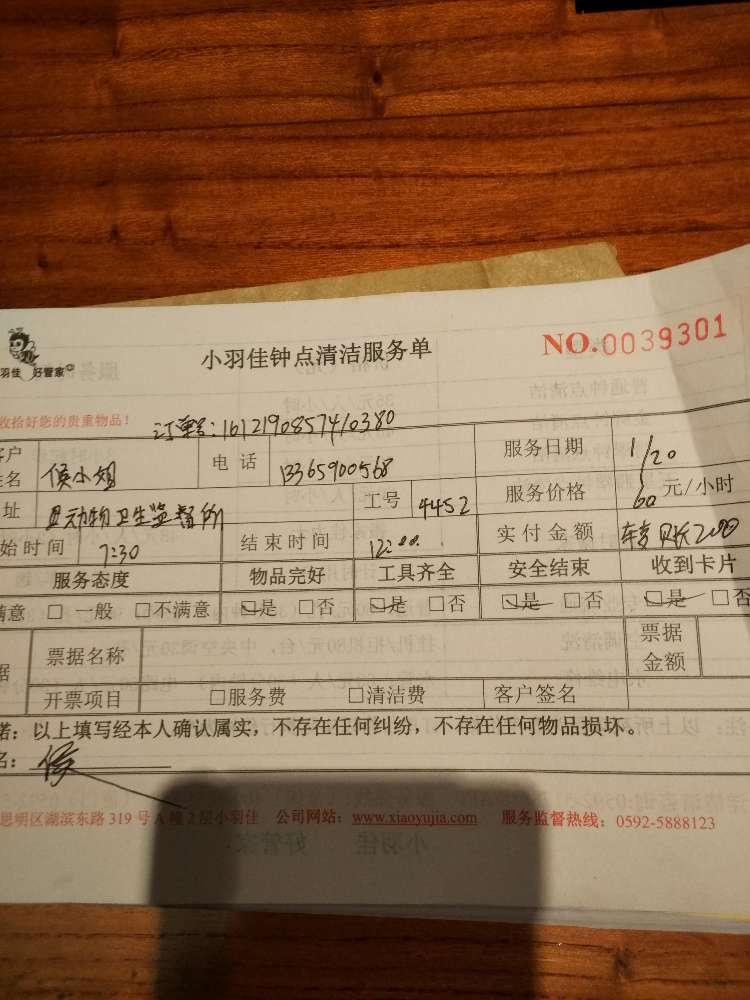 羽佳 好管家
小羽佳钟点清洁服务单
NO.0039301
收拾好您的贵重物品！
订单号:1612190857410380
客户姓名 侯小姐 电话 13365900568 服务日期 1/20
址 动物卫生监督所 工号 4452 服务价格 60 元/小时
始时间 7:30 结束时间 12:00 实付金额
服务态度 物品完好 工具齐全 安全结束 收到卡片
满意 □一般 □不满意 ☑是 □否 ☑是 □否 ☑是 □否 ☑是 □否
据 票据名称 票据金额
开票项目 □服务费 □清洁费 客户签名
诺：以上填写经本人确认属实，不存在任何纠纷，不存在任何物品损坏。
名：侯
思明区湖滨东路 319 号 A 幢 2 层小羽佳 公司网站：www.xiaoyujia.com 服务监督热线：0592-5888123